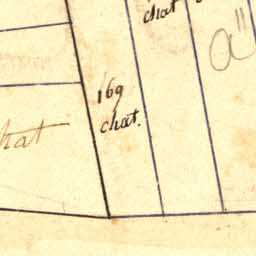 chat
a"
169
chat.
hat